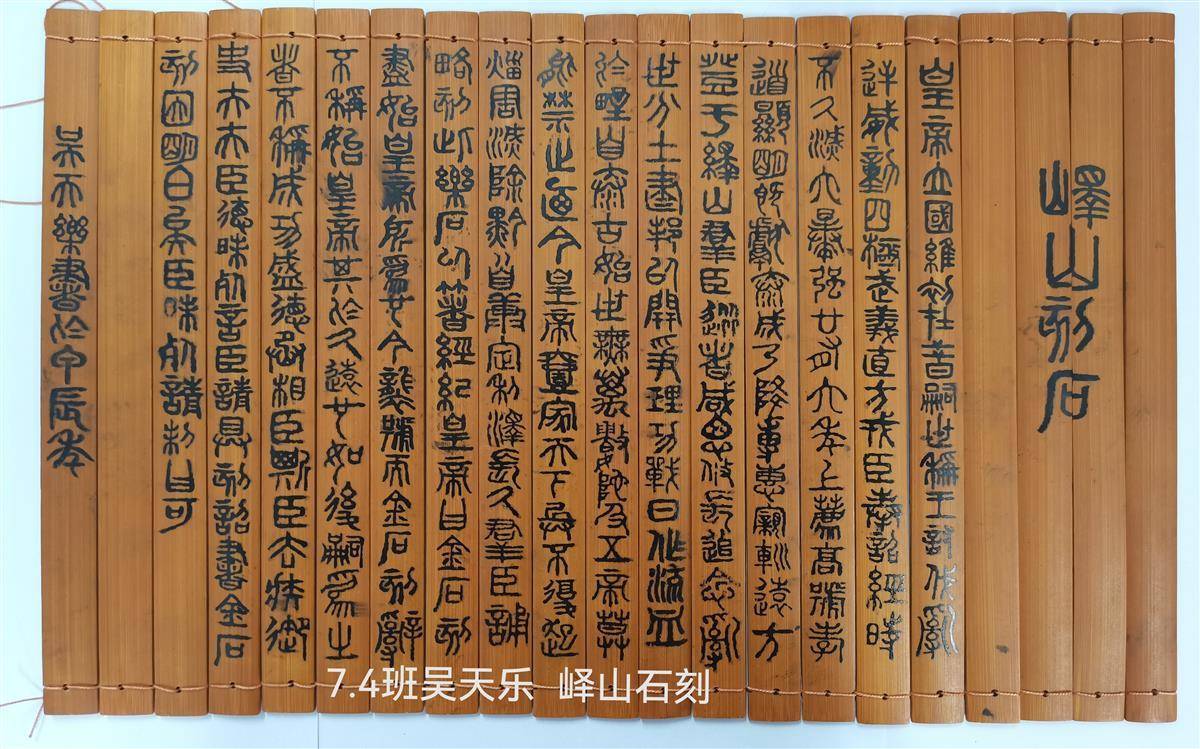 嶧山刻石
皇帝立國維初在昔嗣世稱王討伐亂
逆威動四極武義直方戎臣奉詔經時
不久滅六暴強廿有六年上薦高號孝
道顯明既獻泰成乃降專惠寴巡遠方
登于繹山群臣從者咸思攸長追念亂
世分土建邦以開爭理功戰日作流血
於野自泰古始世無萬數陀及五帝莫
能禁止迺今皇帝壹家天下兵不復起
災害滅除黔首康定利澤長久群臣誦
略刻此樂石以著經紀皇帝曰金石刻
盡始皇帝所為也今襲號而金石刻辭
不稱始皇帝其於久遠也如後嗣為之
者不稱成功盛德丞相臣斯臣去疾御
史夫夫臣德昧死言臣請具刻詔書金石
刻因明白矣臣昧死請制曰可
吳天樂書於甲辰年
7.4班吴天乐 峄山石刻